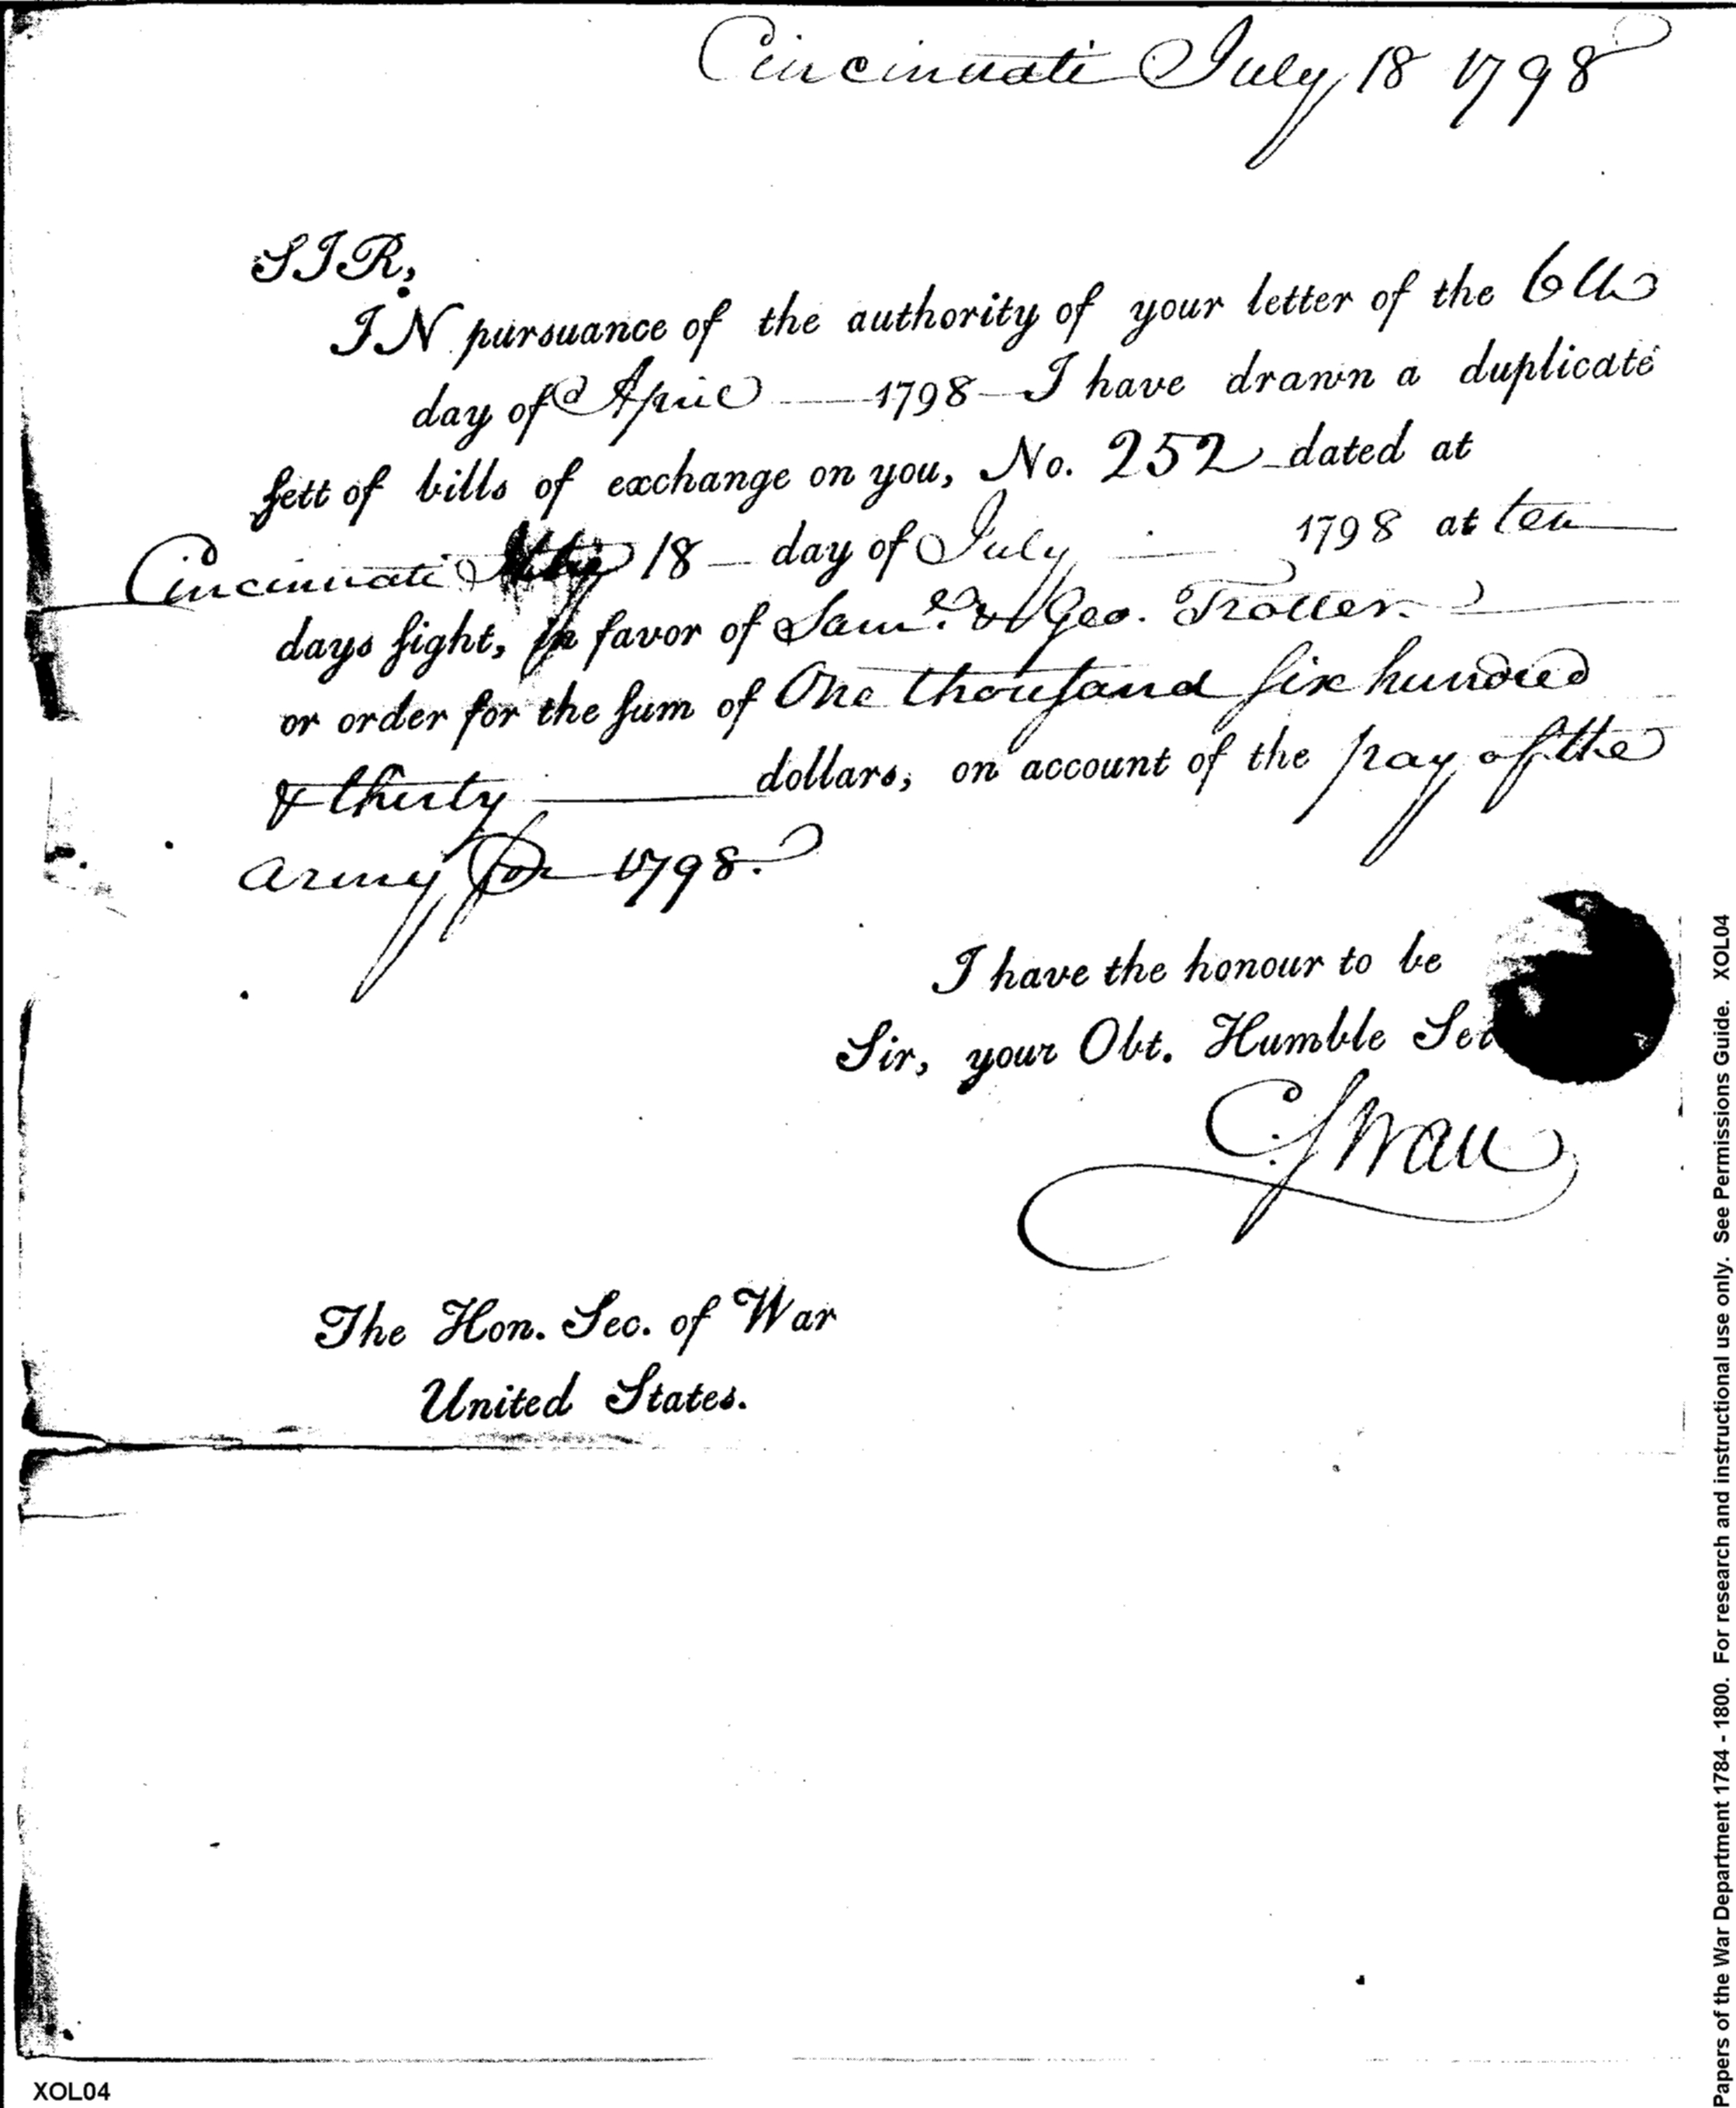 Cincinnati July 18 1798
SIR,
IN pursuance of the authority of your letter of the 6th
day of April 1798 I have drawn a duplicate
sett of bills of exchange on you, No. 252 dated at
Cincinnati 18 day of July 1798 at ten
days sight, in favor of Saml. & Geo. Trotter.
or order for the sum of One thousand six hundred
& thirty dollars, on account of the pay of the
army for 1798.
I have the honour to be
Sir, your Obt. Humble
C. Swan
The Hon. Sec. of War
United States.
XOL04
Papers of the War Department 1784 - 1800. For research and instructional use only. See Permissions Guide. XOL04